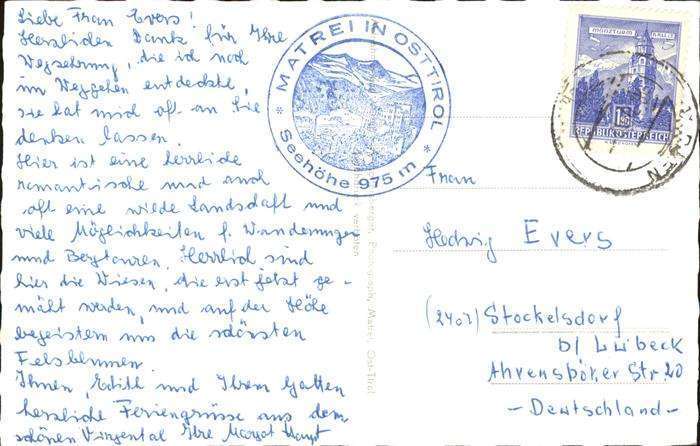 Liebe Frau Evers!
Herzlichen Dank für Ihre
Wegzehrung, die ich noch
im Weggehen entdeckte,
sie hat mich oft an Sie
denken lassen.
Hier ist eine herrliche
romantische und auch
oft eine wilde Landschaft und
viele Möglichkeiten f. Wanderungen
und Bergtouren. Herrlich sind
hier die Wiesen, die erst jetzt ge-
mäht werden, und auf der Höhe
begeistern uns die schönsten
Felsblumen.
Ihnen, Edith und Ihrem Gatten
herzliche Feriengrüsse aus dem
schönen Virgental Ihre Margot
MATREI IN OSTTIROL
Seehöhe 975 m
MÜNZTURM
HALL I. T.
1.50
REPUBLIK ÖSTERREICH
Photography, Matrei, Ost-Tirol
Frau
Hedwig Evers
(2407) Stockelsdorf
b/ Lübeck
Ahrensböker Str. 20
- Deutschland -